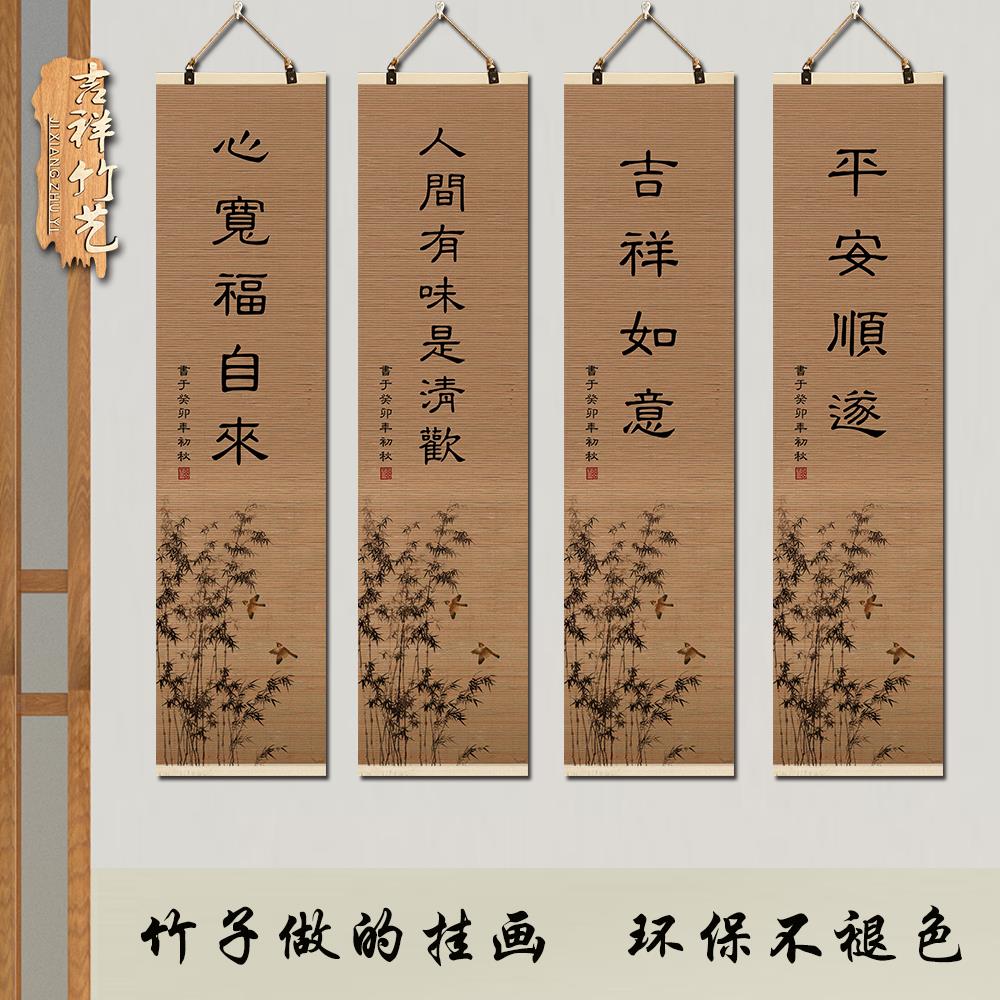 吉祥竹艺
JI XIANG ZHU YI
心寬福自來
書于癸卯年初秋
人間有味是清歡
書于癸卯年初秋
吉祥如意
書于癸卯年初秋
平安順遂
書于癸卯年初秋
竹子做的挂画 环保不褪色